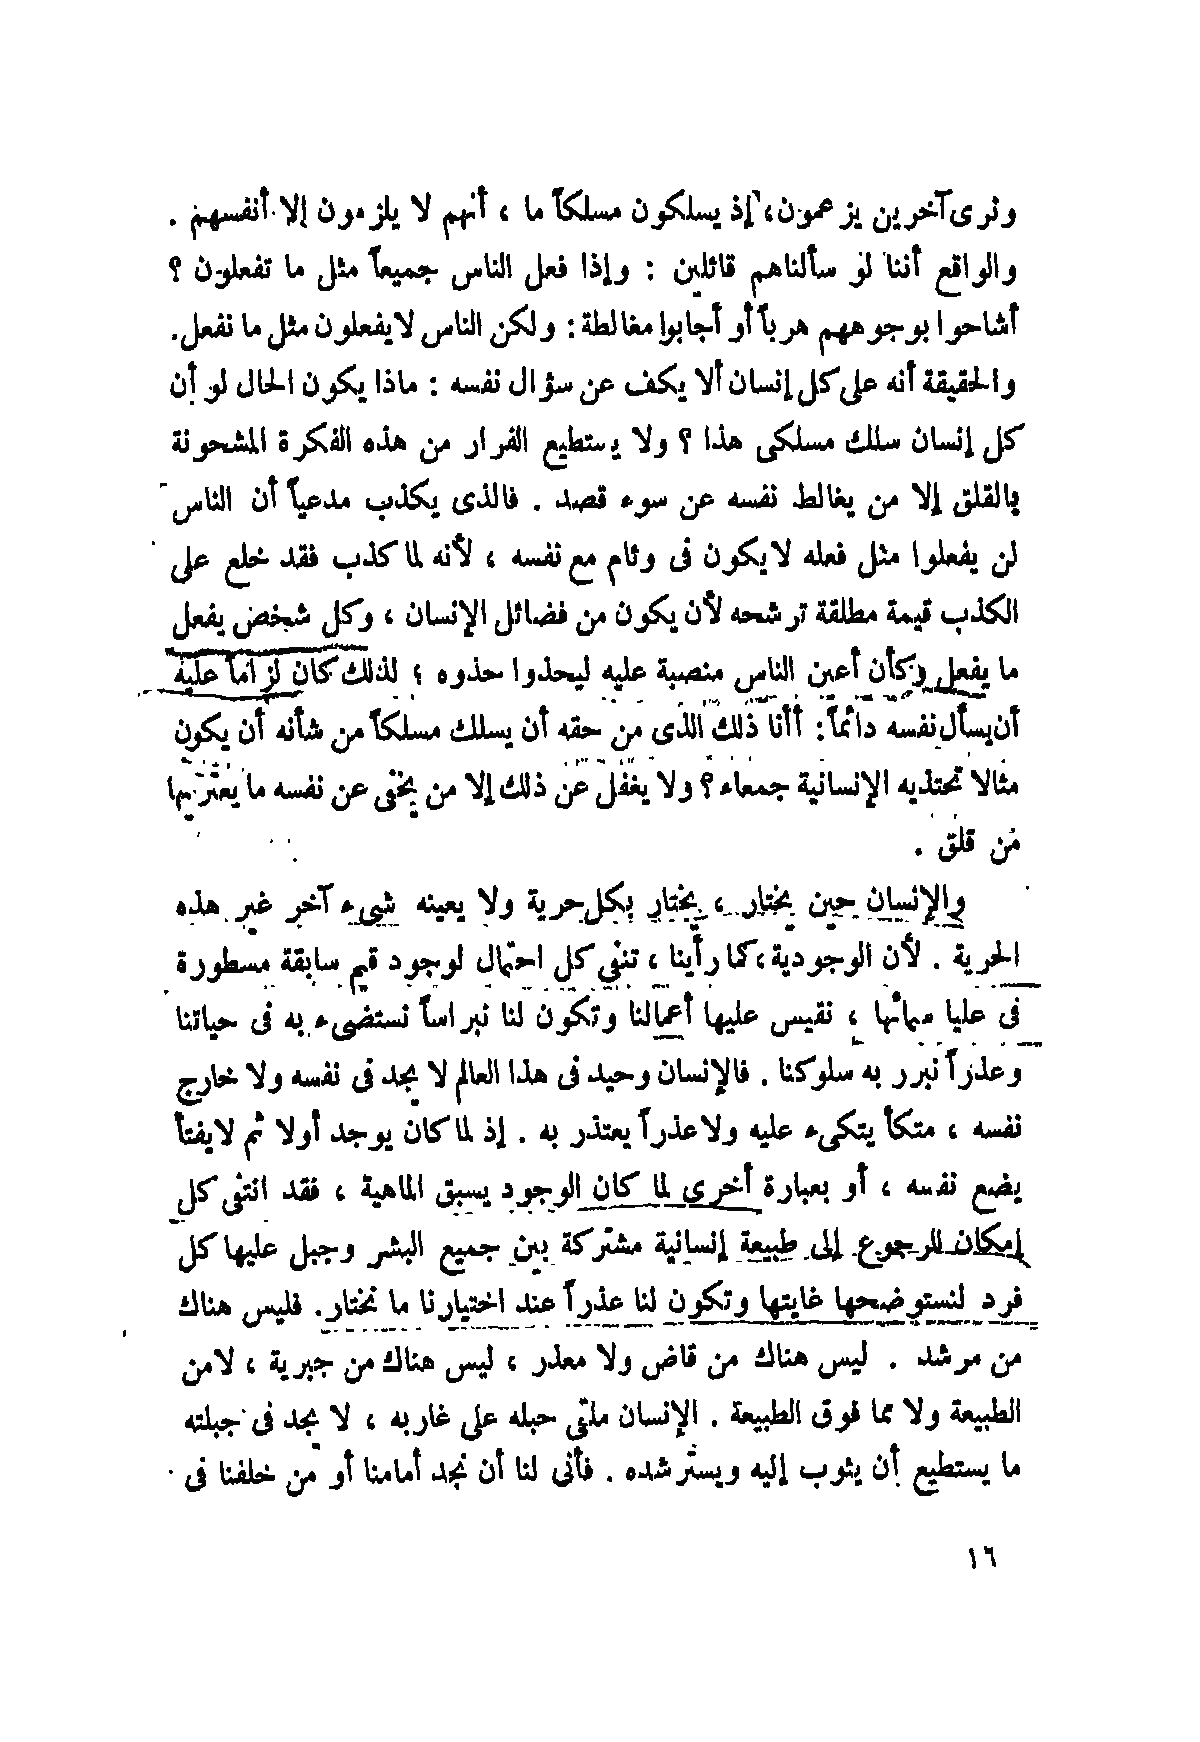 ونرى آخرين يزعمون، إذ يسلكون مسلكاً ما ، أنهم لا يلزمون إلا أنفسهم .
والواقع أننا لو سألناهم قائلين : وإذا فعل الناس جميعاً مثل ما تفعلون ؟
أشاحوا بوجوههم هرباً أو أجابوا مغالطة : ولكن الناس لا يفعلون مثل ما نفعل.
والحقيقة أنه على كل إنسان ألا يكف عن سؤال نفسه : ماذا يكون الحال لو أن
كل إنسان سلك مسلكى هذا ؟ ولا يستطيع الفرار من هذه الفكرة المشحونة
بالقلق إلا من يغالط نفسه عن سوء قصد . فالذى يكذب مدعياً أن الناس
لن يفعلوا مثل فعله لا يكون فى وئام مع نفسه ، لأنه لما كذب فقد خلع على
الكذب قيمة مطلقة ترشحه لأن يكون من فضائل الإنسان ، وكل شخص يفعل
ما يفعل وكأن أعين الناس منصبة عليه ليحذوا حذوه ؛ لذلك كان لزاماً عليه
أن يسأل نفسه دائماً : أأنا ذلك الذى من حقه أن يسلك مسلكاً من شأنه أن يكون
مثالا تحتذيه الإنسانية جمعاء ؟ ولا يغفل عن ذلك إلا من يخفى عن نفسه ما يعتريها
من قلق .
والإنسان حين يختار ، يختار بكل حرية ولا يعينه شىء آخر غير هذه
الحرية . لأن الوجودية ، كما رأينا ، تنفى كل احتمال لوجود قيم سابقة مسطورة
فى عليا سمائها ، نقيس عليها أعمالنا وتكون لنا نبراساً نستضىء به فى حياتنا
وعذراً نبرر به سلوكنا . فالإنسان وحيد فى هذا العالم لا يجد فى نفسه ولا خارج
نفسه ، متكأ يتكىء عليه ولا عذراً يعتذر به . إذ لما كان يوجد أولا ثم لا يفتأ
يضع نفسه ، أو بعبارة أخرى لما كان الوجود يسبق الماهية ، فقد انتفى كل
إمكان للرجوع إلى طبيعة إنسانية مشتركة بين جميع البشر وجبل عليها كل
فرد لنستوضحها غايتها وتكون لنا عذراً عند اختيارنا ما نختار. فليس هناك
من مرشد . ليس هناك من قاض ولا معذر ، ليس هناك من جبرية ، لا من
الطبيعة ولا مما فوق الطبيعة . الإنسان ملقى حبله على غاربه ، لا يجد فى جبلته
ما يستطيع أن يثوب إليه ويسترشده . فأنى لنا أن نجد أمامنا أو من خلفنا فى
١٦